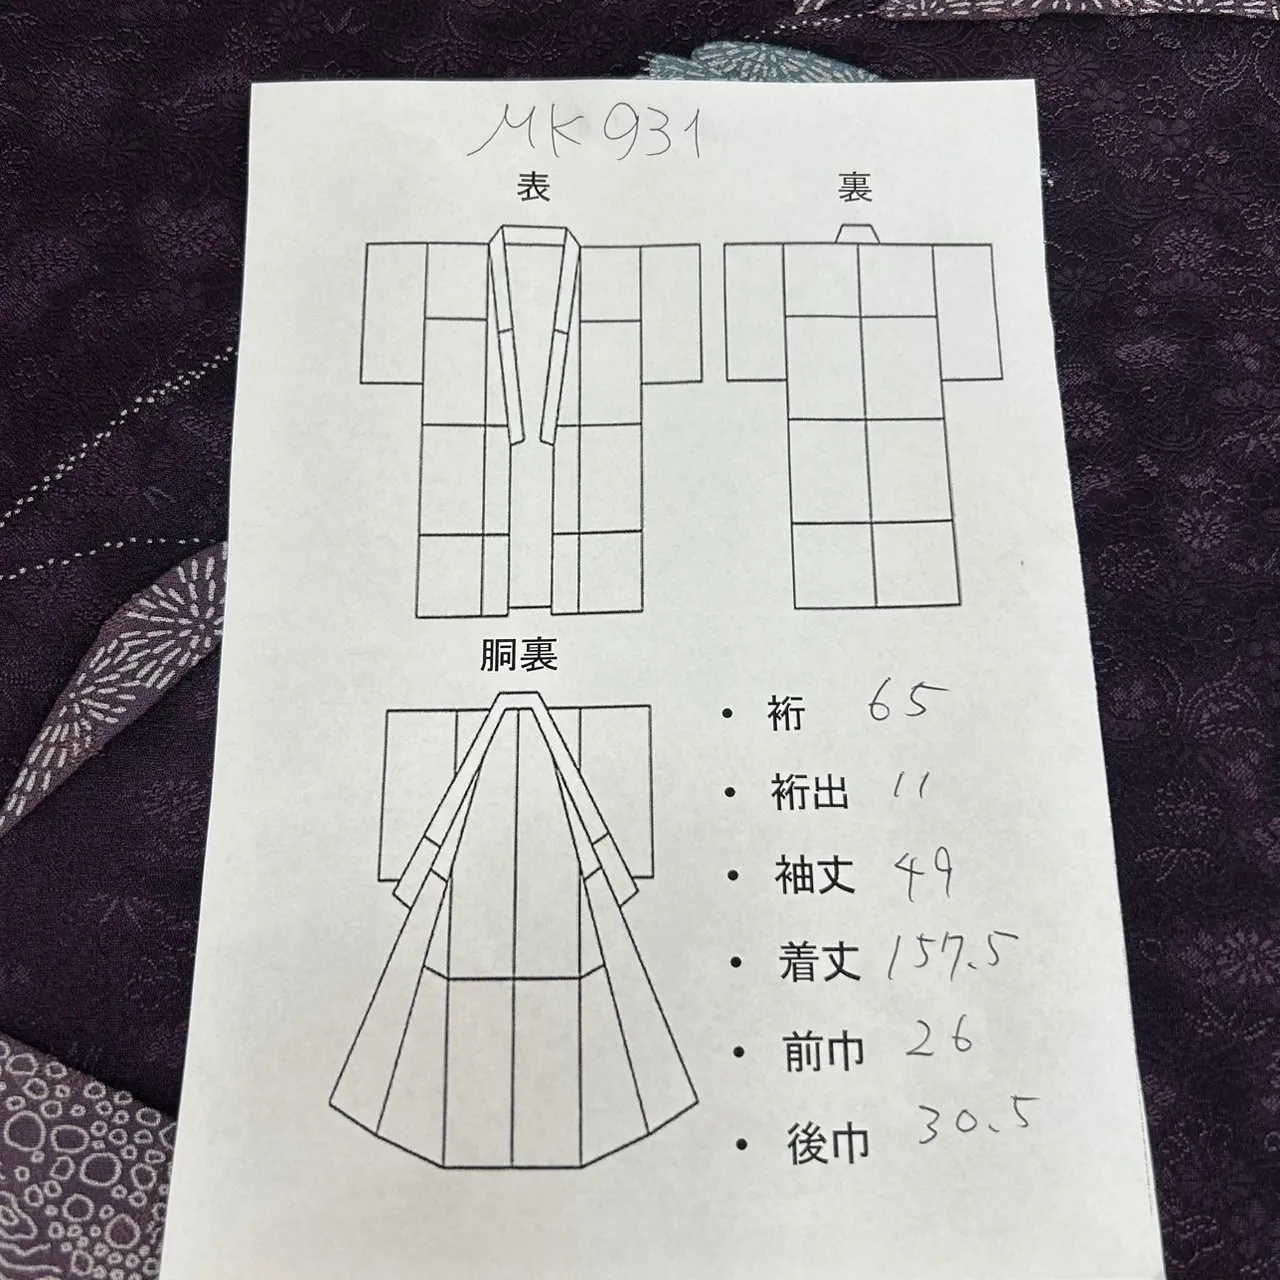 MK931
表
裏
胴裏
・ 裄 65
・ 裄出 11
・ 袖丈 49
・ 着丈 157.5
・ 前巾 26
・ 後巾 30.5